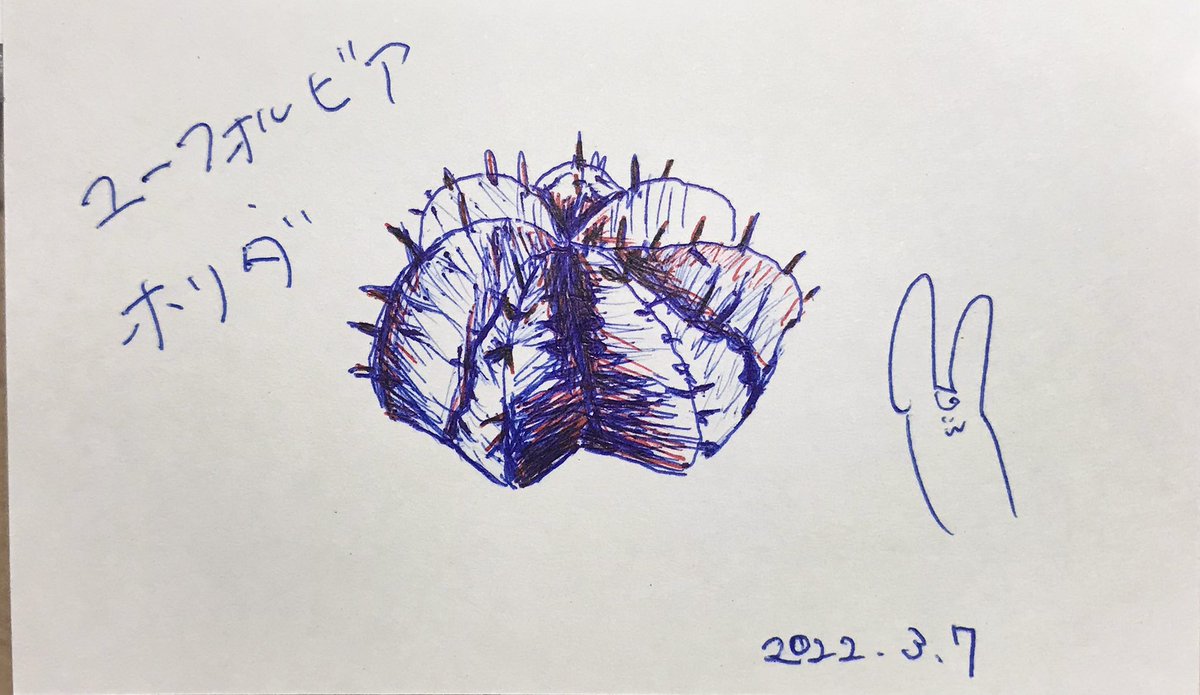 ユーフォルビア
ホリダ
2022.3.7